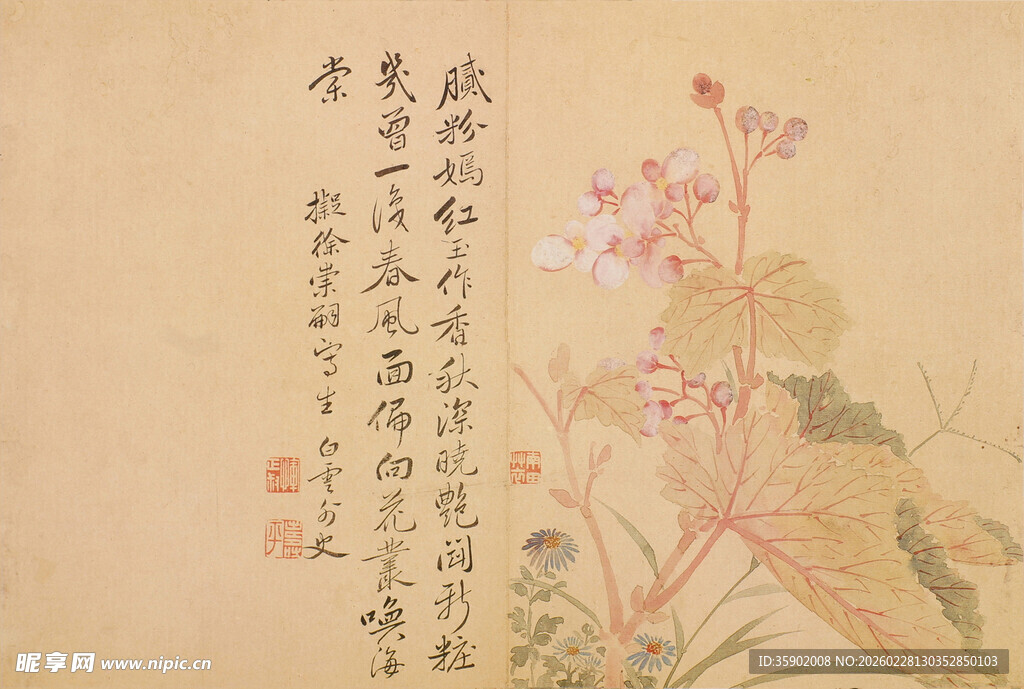 膩粉嫣紅玉作香秋深曉艷鬪新粧
幾曾一後春風面偏向花叢喚海
棠
擬徐崇嗣寫生
白雲外史
南田
惲
正叔
壽平
昵享网 www.nipic.cn
ID:35902008 NO:20260228130352850103